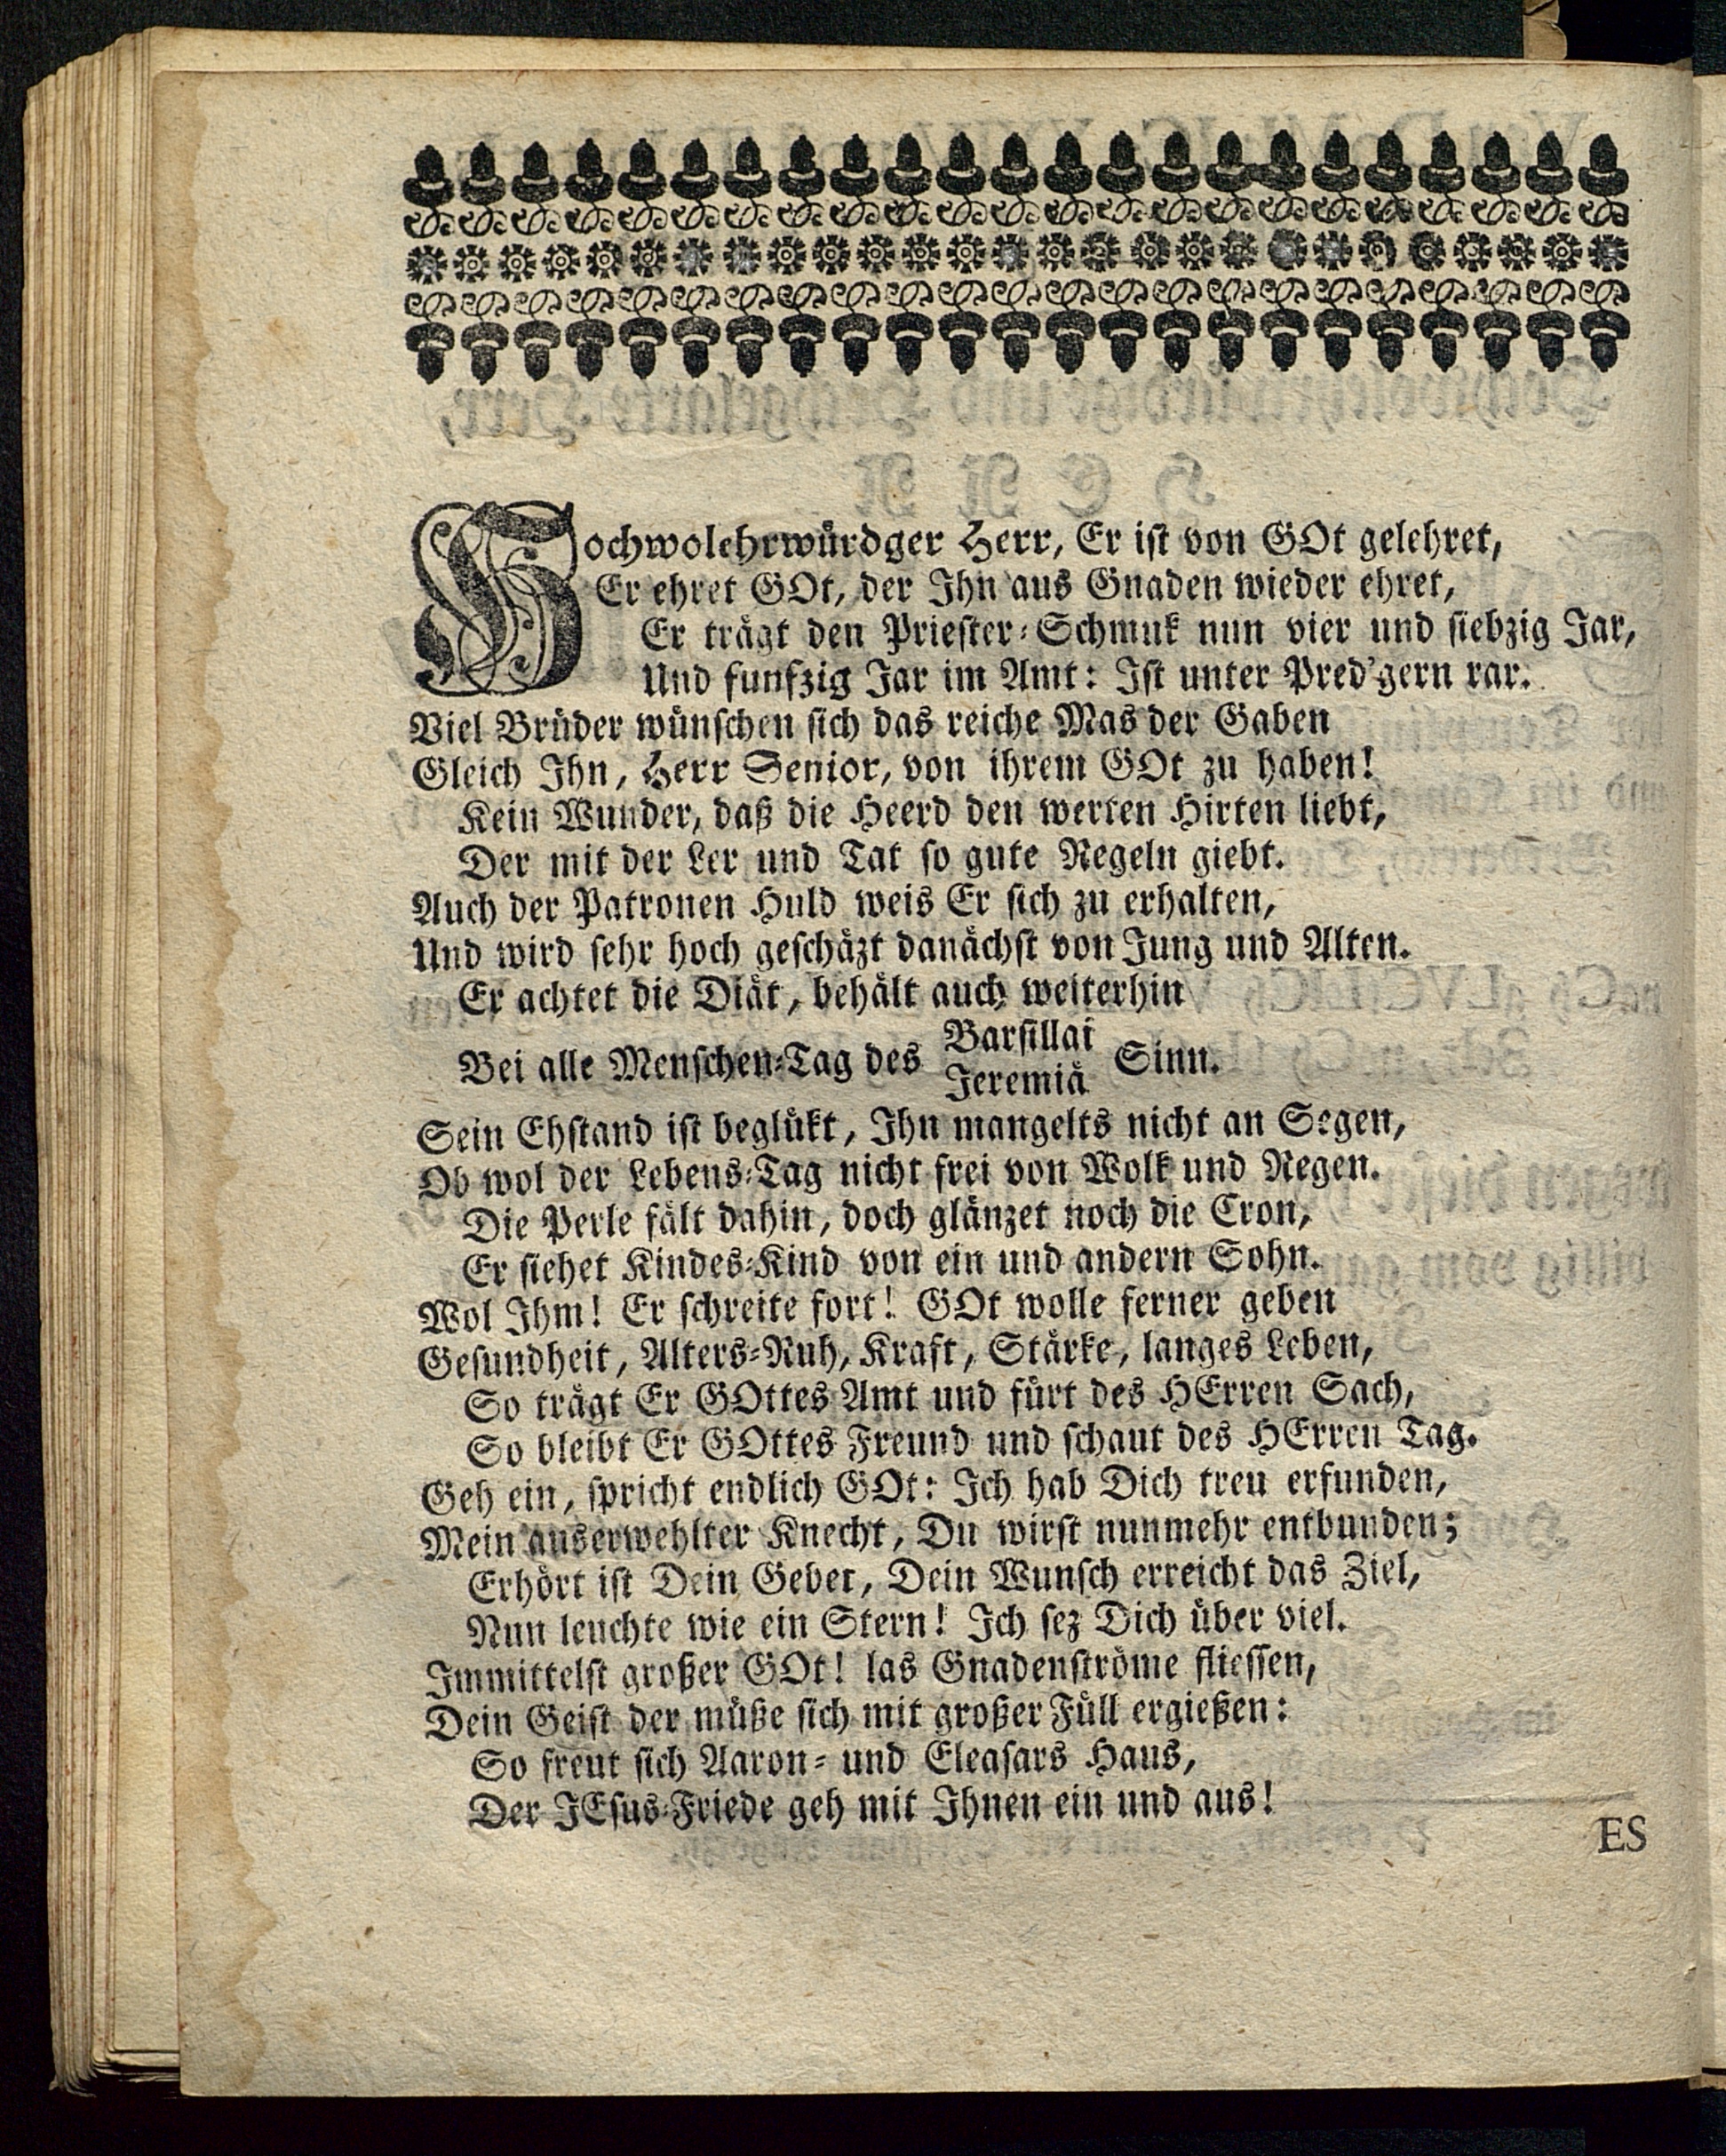 Hochwolehrwürdger Herr, Er ist von GOt gelehret,
Er ehret GOt, der Ihn aus Gnaden wieder ehret,
Er trägt den Priester-Schmuk nun vier und siebzig Jar,
Und funfzig Jar im Amt: Ist unter Pred'gern rar.
Viel Brüder wünschen sich das reiche Mas der Gaben
Gleich Ihn, Herr Senior, von ihrem GOt zu haben!
Kein Wunder, daß die Heerd den werten Hirten liebt,
Der mit der Ler und Tat so gute Regeln giebt.
Auch der Patronen Huld weis Er sich zu erhalten,
Und wird sehr hoch geschäzt danächst von Jung und Alten.
Er achtet die Diät, behält auch weiterhin
Bei alle Menschen-Tag des Barsillai Jeremiä Sinn.
Sein Ehstand ist beglükt, Ihn mangelts nicht an Segen,
Ob wol der Lebens-Tag nicht frei von Wolk und Regen.
Die Perle fält dahin, doch glänzet noch die Cron,
Er siehet Kindes-Kind von ein und andern Sohn.
Wol Ihm! Er schreite fort! GOt wolle ferner geben
Gesundheit, Alters-Ruh, Kraft, Stärke, langes Leben,
So trägt Er GOttes Amt und fürt des HErren Sach,
So bleibt Er GOttes Freund und schaut des HErren Tag.
Geh ein, spricht endlich GOt: Ich hab Dich treu erfunden,
Mein auserwehlter Knecht, Du wirst nunmehr entbunden;
Erhört ist Dein Gebet, Dein Wunsch erreicht das Ziel,
Nun leuchte wie ein Stern! Ich sez Dich über viel.
Immittelst großer GOt! las Gnadenströme fliessen,
Dein Geist der müße sich mit großer Füll ergießen:
So freut sich Aaron- und Eleasars Haus,
Der JEsus-Friede geh mit Ihnen ein und aus!
ES